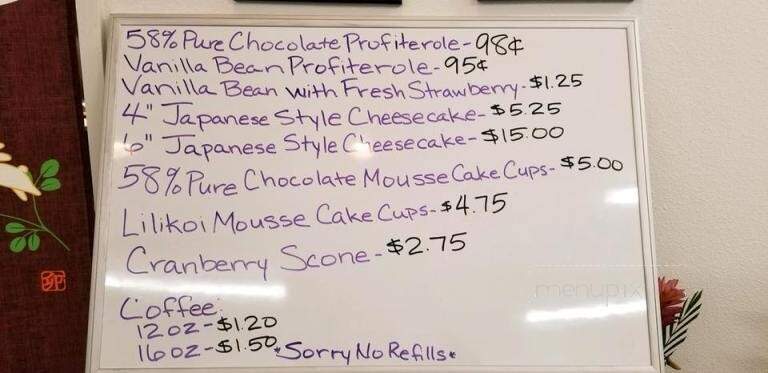 58% Pure Chocolate Profiterole - 98¢
Vanilla Bean Profiterole - 95¢
Vanilla Bean with Fresh Strawberry - $1.25
4" Japanese Style Cheesecake - $5.25
6" Japanese Style Cheesecake - $15.00
58% Pure Chocolate Mousse Cake Cups - $5.00
Lilikoi Mousse Cake Cups - $4.75
Cranberry Scone - $2.75
Coffee:
12oz - $1.20
16oz - $1.50 *Sorry No Refills*
menupix